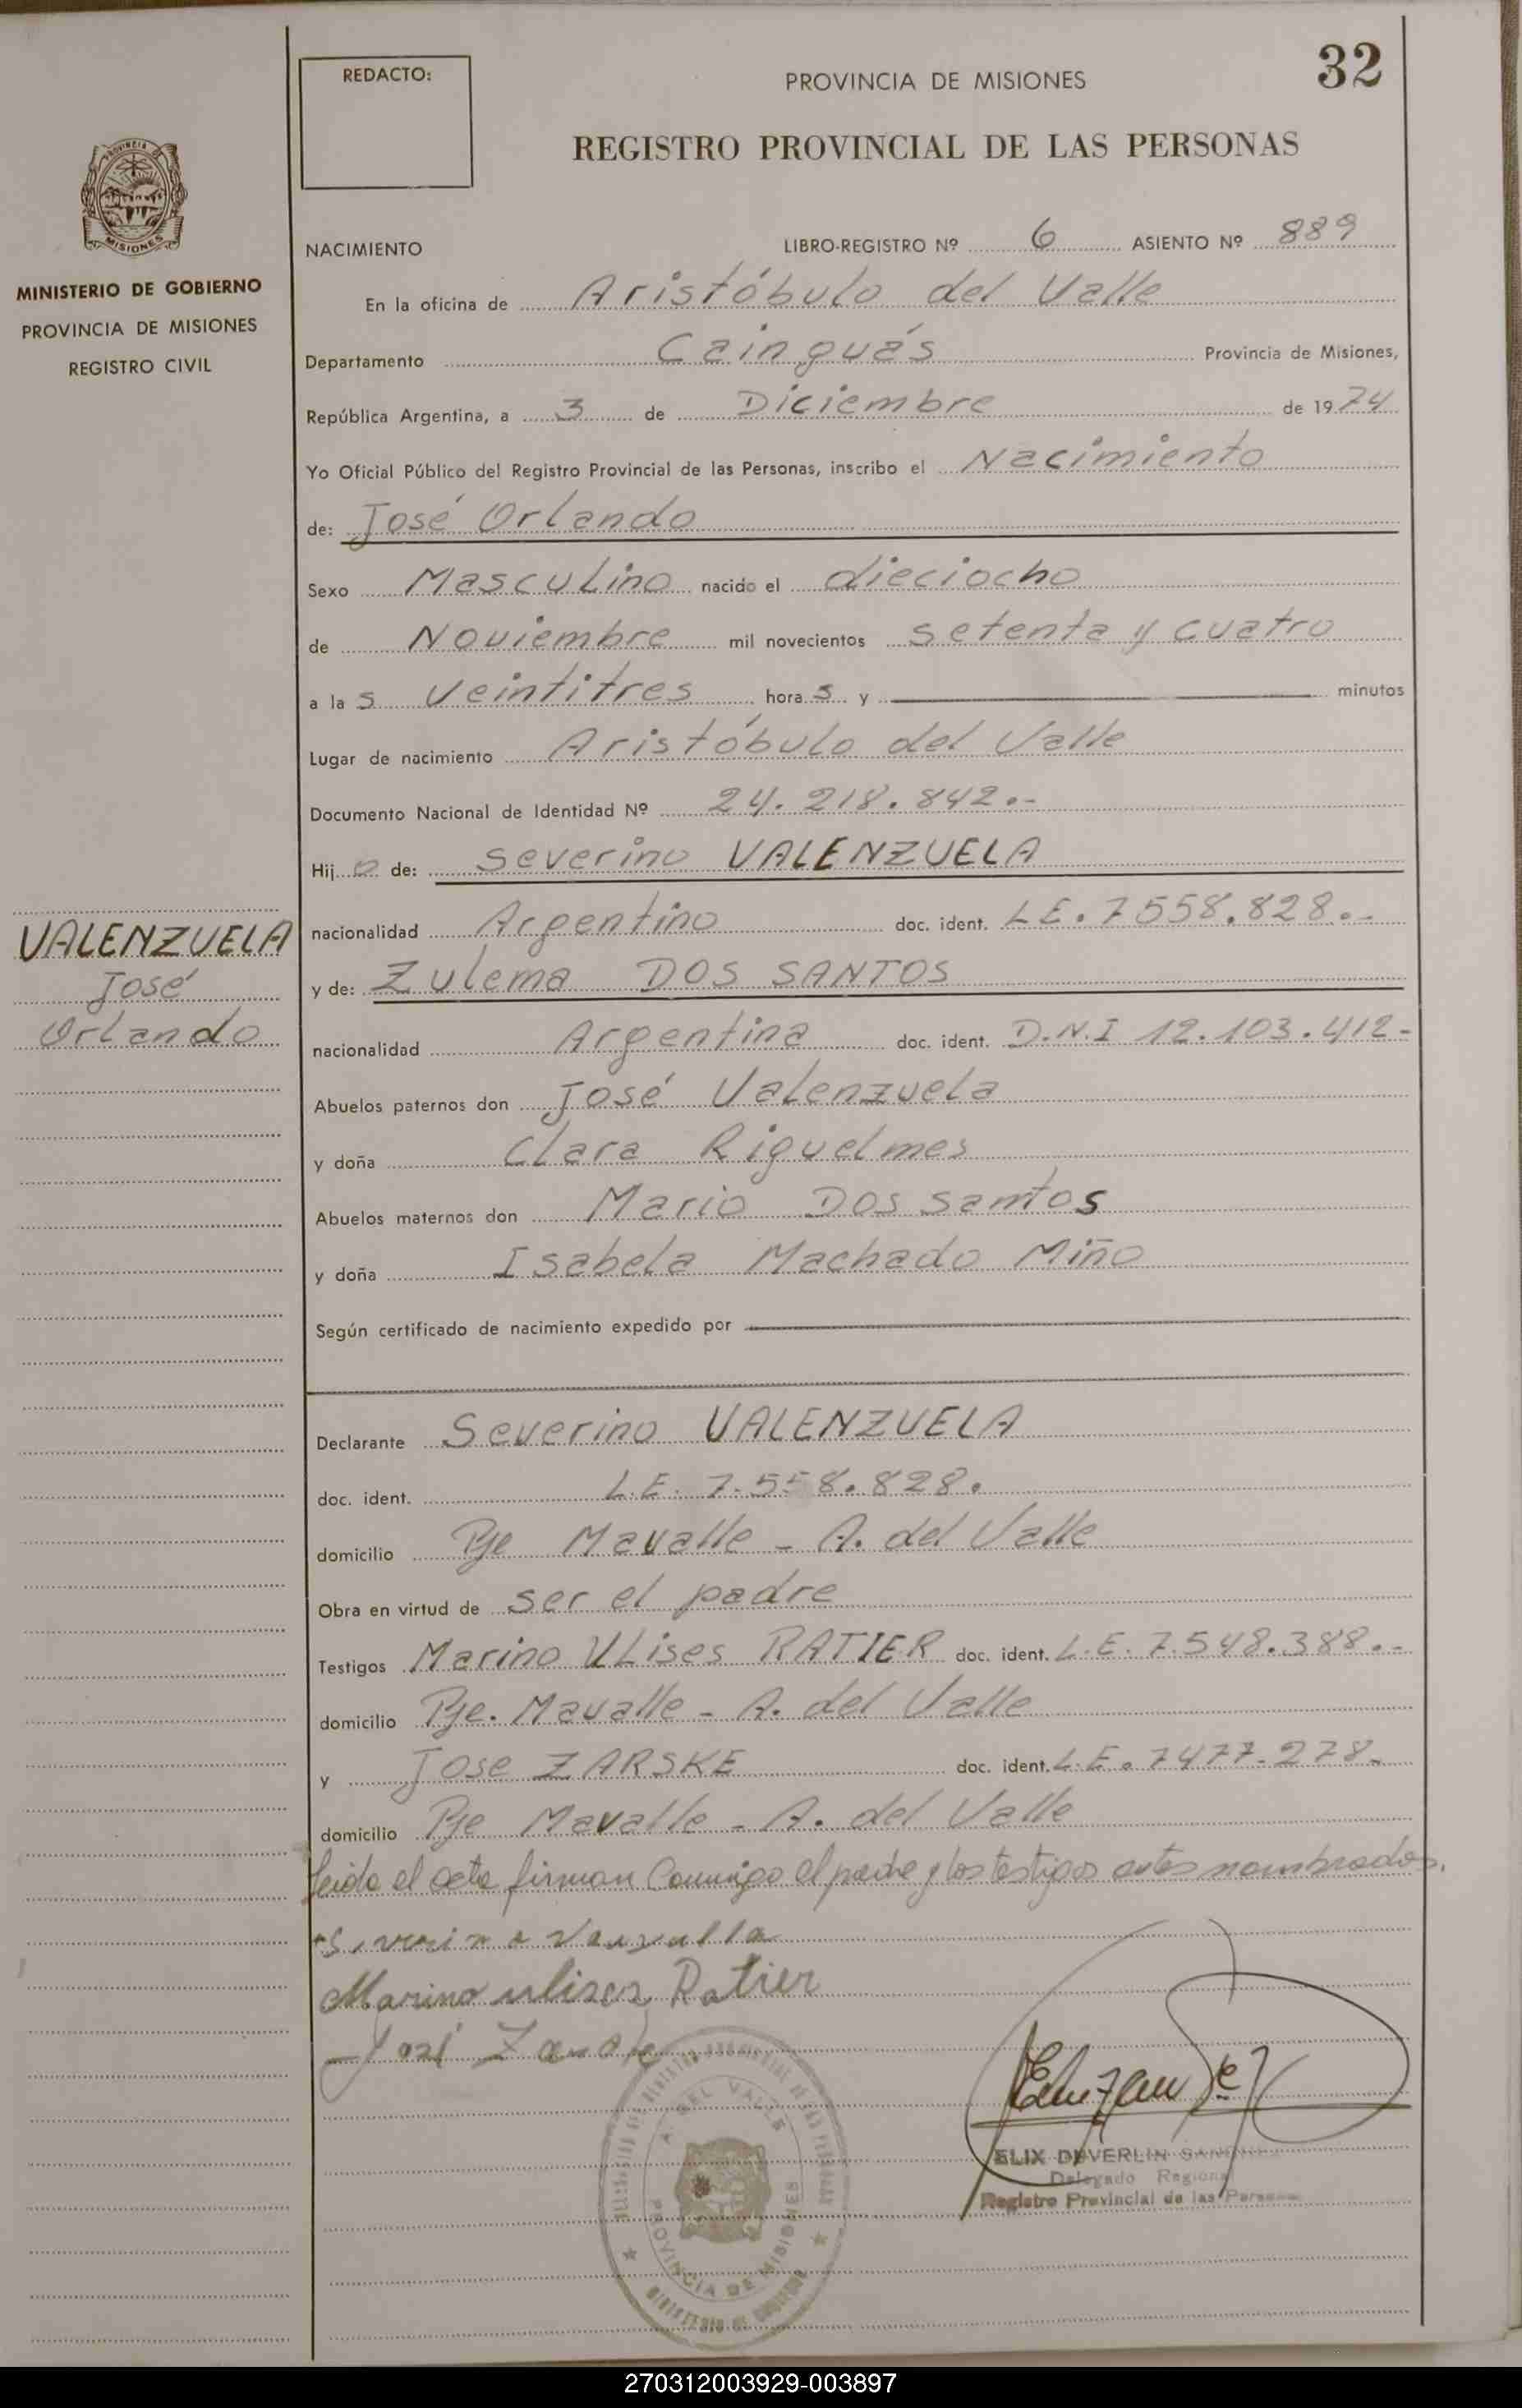 REDACTO:
PROVINCIA DE MISIONES
32
REGISTRO PROVINCIAL DE LAS PERSONAS
MISIONES
MINISTERIO DE GOBIERNO
PROVINCIA DE MISIONES
REGISTRO CIVIL
NACIMIENTO LIBRO-REGISTRO Nº 6 ASIENTO Nº 889
En la oficina de Aristóbulo del Valle
Departamento Cainguás Provincia de Misiones,
República Argentina, a 3 de Diciembre de 1974
Yo Oficial Público del Registro Provincial de las Personas, inscribo el Nacimiento
de: José Orlando
Sexo Masculino nacido el dieciocho
de Noviembre mil novecientos setenta y cuatro
a las veintitres horas y minutos
Lugar de nacimiento Aristóbulo del Valle
Documento Nacional de Identidad Nº 24.218.842.-
Hijo de: Severino VALENZUELA
nacionalidad Argentino doc. ident. LE.7558.828.-
y de: Zulema DOS SANTOS
nacionalidad Argentina doc. ident. D.N.I 12.103.412-
Abuelos paternos don José Valenzuela
y doña Clara Riquelmes
Abuelos maternos don Mario Dos santos
y doña Isabela Machado Miño
Según certificado de nacimiento expedido por
VALENZUELA
José
Orlando
Declarante Severino VALENZUELA
doc. ident. L.E. 7.558.828.
domicilio Pje Mavalle - A. del Valle
Obra en virtud de ser el padre
Testigos Marino Ulises RATIER doc. ident. L.E. 7.548.388.-
domicilio Pje. Mavalle - A. del Valle
y Jose ZARSKE doc. ident. L.E. 7477-278-
domicilio Pje Mavalle - A. del Valle
leida el acta firman conmigo el padre y los testigos antes nombrados.
Marino ulises Ratier
José
A. DEL VALLE
PROVINCIA DE MISIONES
MINISTERIO DE GOBIERNO
ELIX DEVERLIN
Delegado Regional
Registro Provincial de las Personas
270312003929-003897